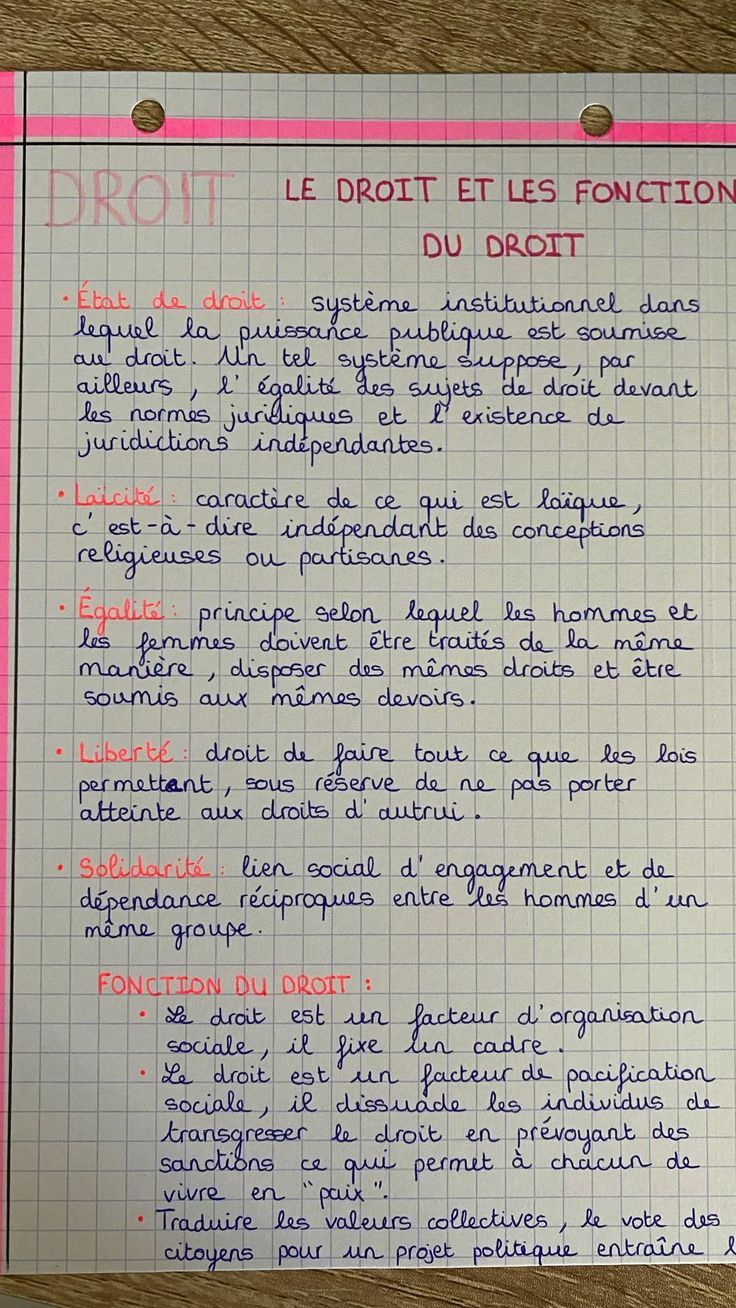 DROIT LE DROIT ET LES FONCTION
DU DROIT
• État de droit : système institutionnel dans
lequel la puissance publique est soumise
au droit. Un tel système suppose, par
ailleurs, l'égalité des sujets de droit devant
les normes juridiques et l'existence de
juridictions indépendantes.
• Laïcité : caractère de ce qui est laïque,
c'est-à-dire indépendant des conceptions
religieuses ou partisanes.
• Égalité : principe selon lequel les hommes et
les femmes doivent être traités de la même
manière, disposer des mêmes droits et être
soumis aux mêmes devoirs.
• Liberté : droit de faire tout ce que les lois
permettant, sous réserve de ne pas porter
atteinte aux droits d'autrui.
• Solidarité : lien social d'engagement et de
dépendance réciproques entre les hommes d'un
même groupe.
FONCTION DU DROIT :
• Le droit est un facteur d'organisation
sociale, il fixe un cadre.
• Le droit est un facteur de pacification
sociale, il dissuade les individus de
transgresser le droit en prévoyant des
sanctions ce qui permet à chacun de
vivre en "paix".
• Traduire les valeurs collectives, le vote des
citoyens pour un projet politique entraîne